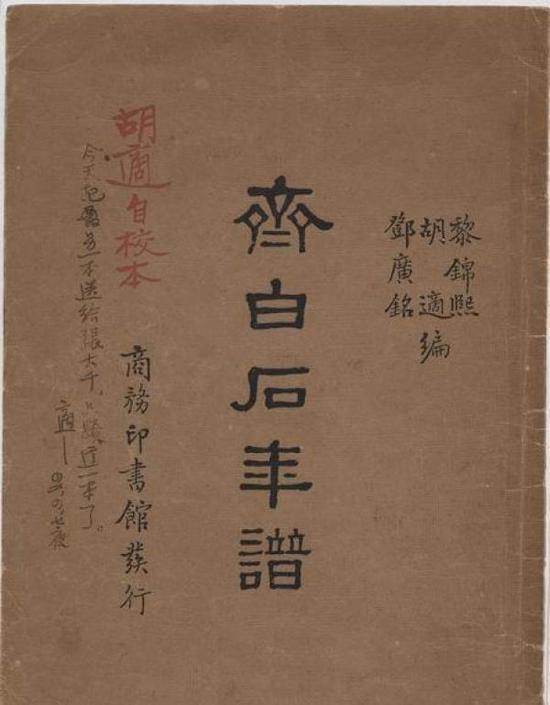 黎錦熙
胡適 編
鄧廣銘
齊白石年譜
商務印書館發行
胡適自校本
今天把一本送給張大千,只賸這一本了。
適